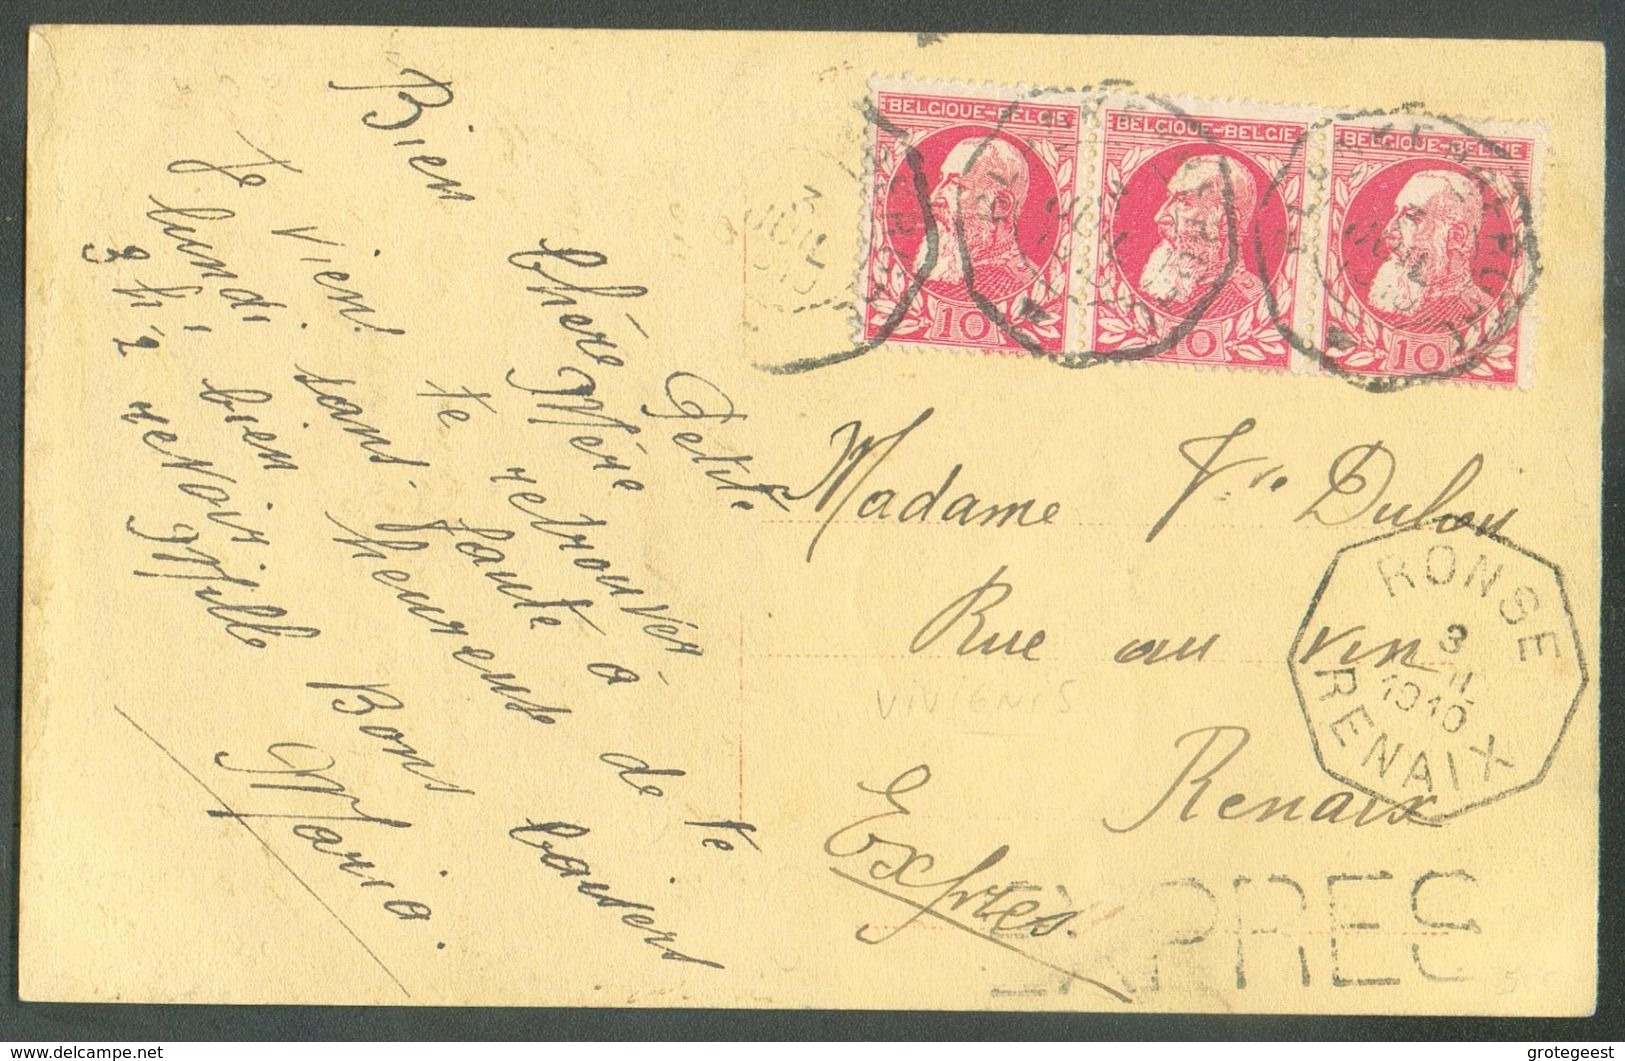 BELGIQUE-BELGIE BELGIQUE-BELGIE BELGIQUE-BELGIE
10 10 10
3
JUIL
1910
Bien
Chère Petite
Mère
Je vien te retrouver
lundi. sans faute à
9 h ½ bien heureuse de te
revoir
Mille Bons baisers
Maria.
Madame Vve
Rue au vin
VIVIGNIS
Renaix
Exprès.
RONSE
3
1910
RENAIX
EXPRES
delcampe.net
grotegeest